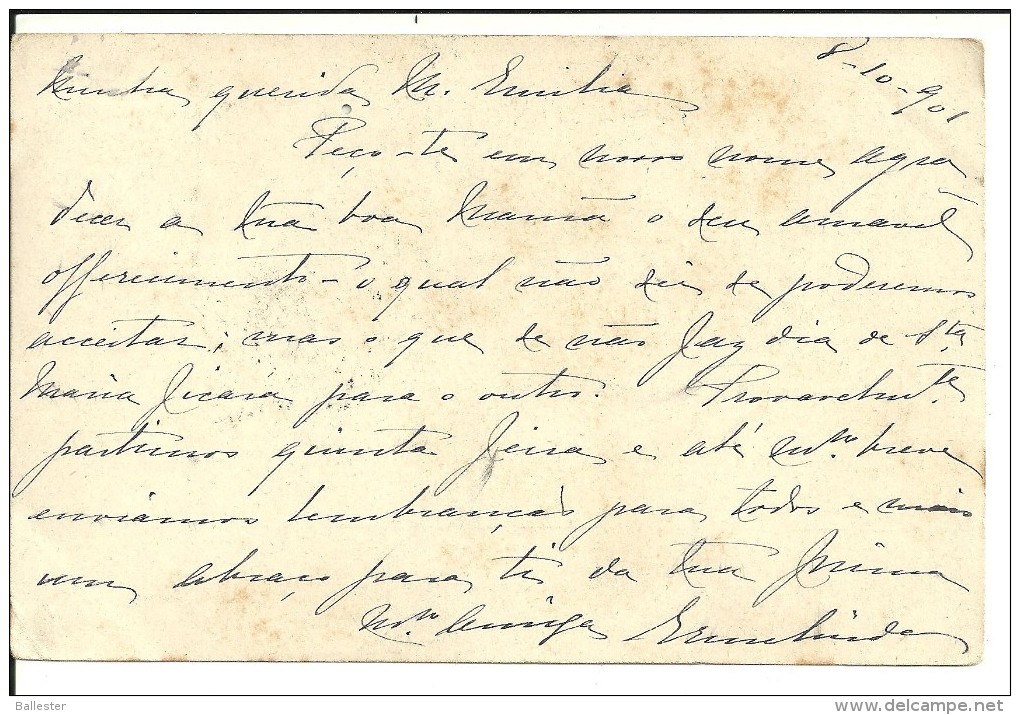 8-10-901
Minha querida M. Emilia
Peço-te em nosso nome agra
decer a tua boa Mamã o seu amavel
offerecimento - o qual não sei se poderemos
acceitar; mas o que se não faz dia de Sta
Maria ficará para o outro. Provavelmte
partimos quinta feira e até mto breve
enviamos lembranças para todos e mais
um abraço para ti da tua prima
mto amiga Ermelinda
Ballester
delcampe.net